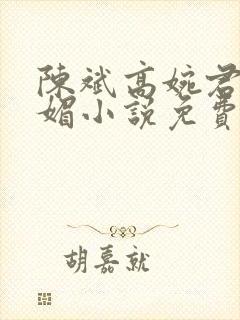 陳斌高婉君
媚小說免費
胡嘉就